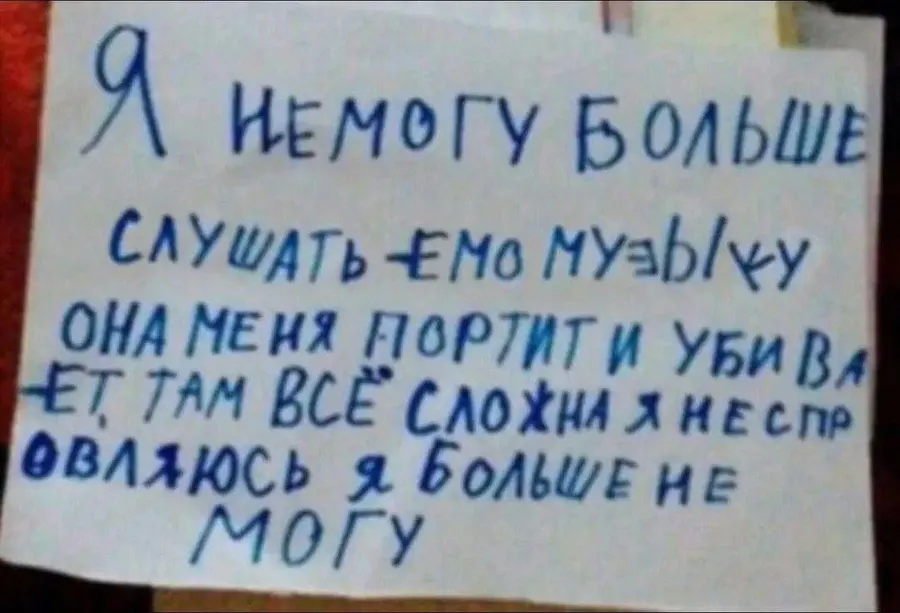 Я НЕМОГУ БОЛЬШЕ
СЛУШАТЬ ЕМО МУЗЫКУ
ОНА МЕНЯ ПОРТИТ И УБИВА
ЕТ, ТАМ ВСЁ СЛОЖНА Я НЕ СПР
ОВЛЯЮСЬ Я БОЛЬШЕ НЕ
МОГУ